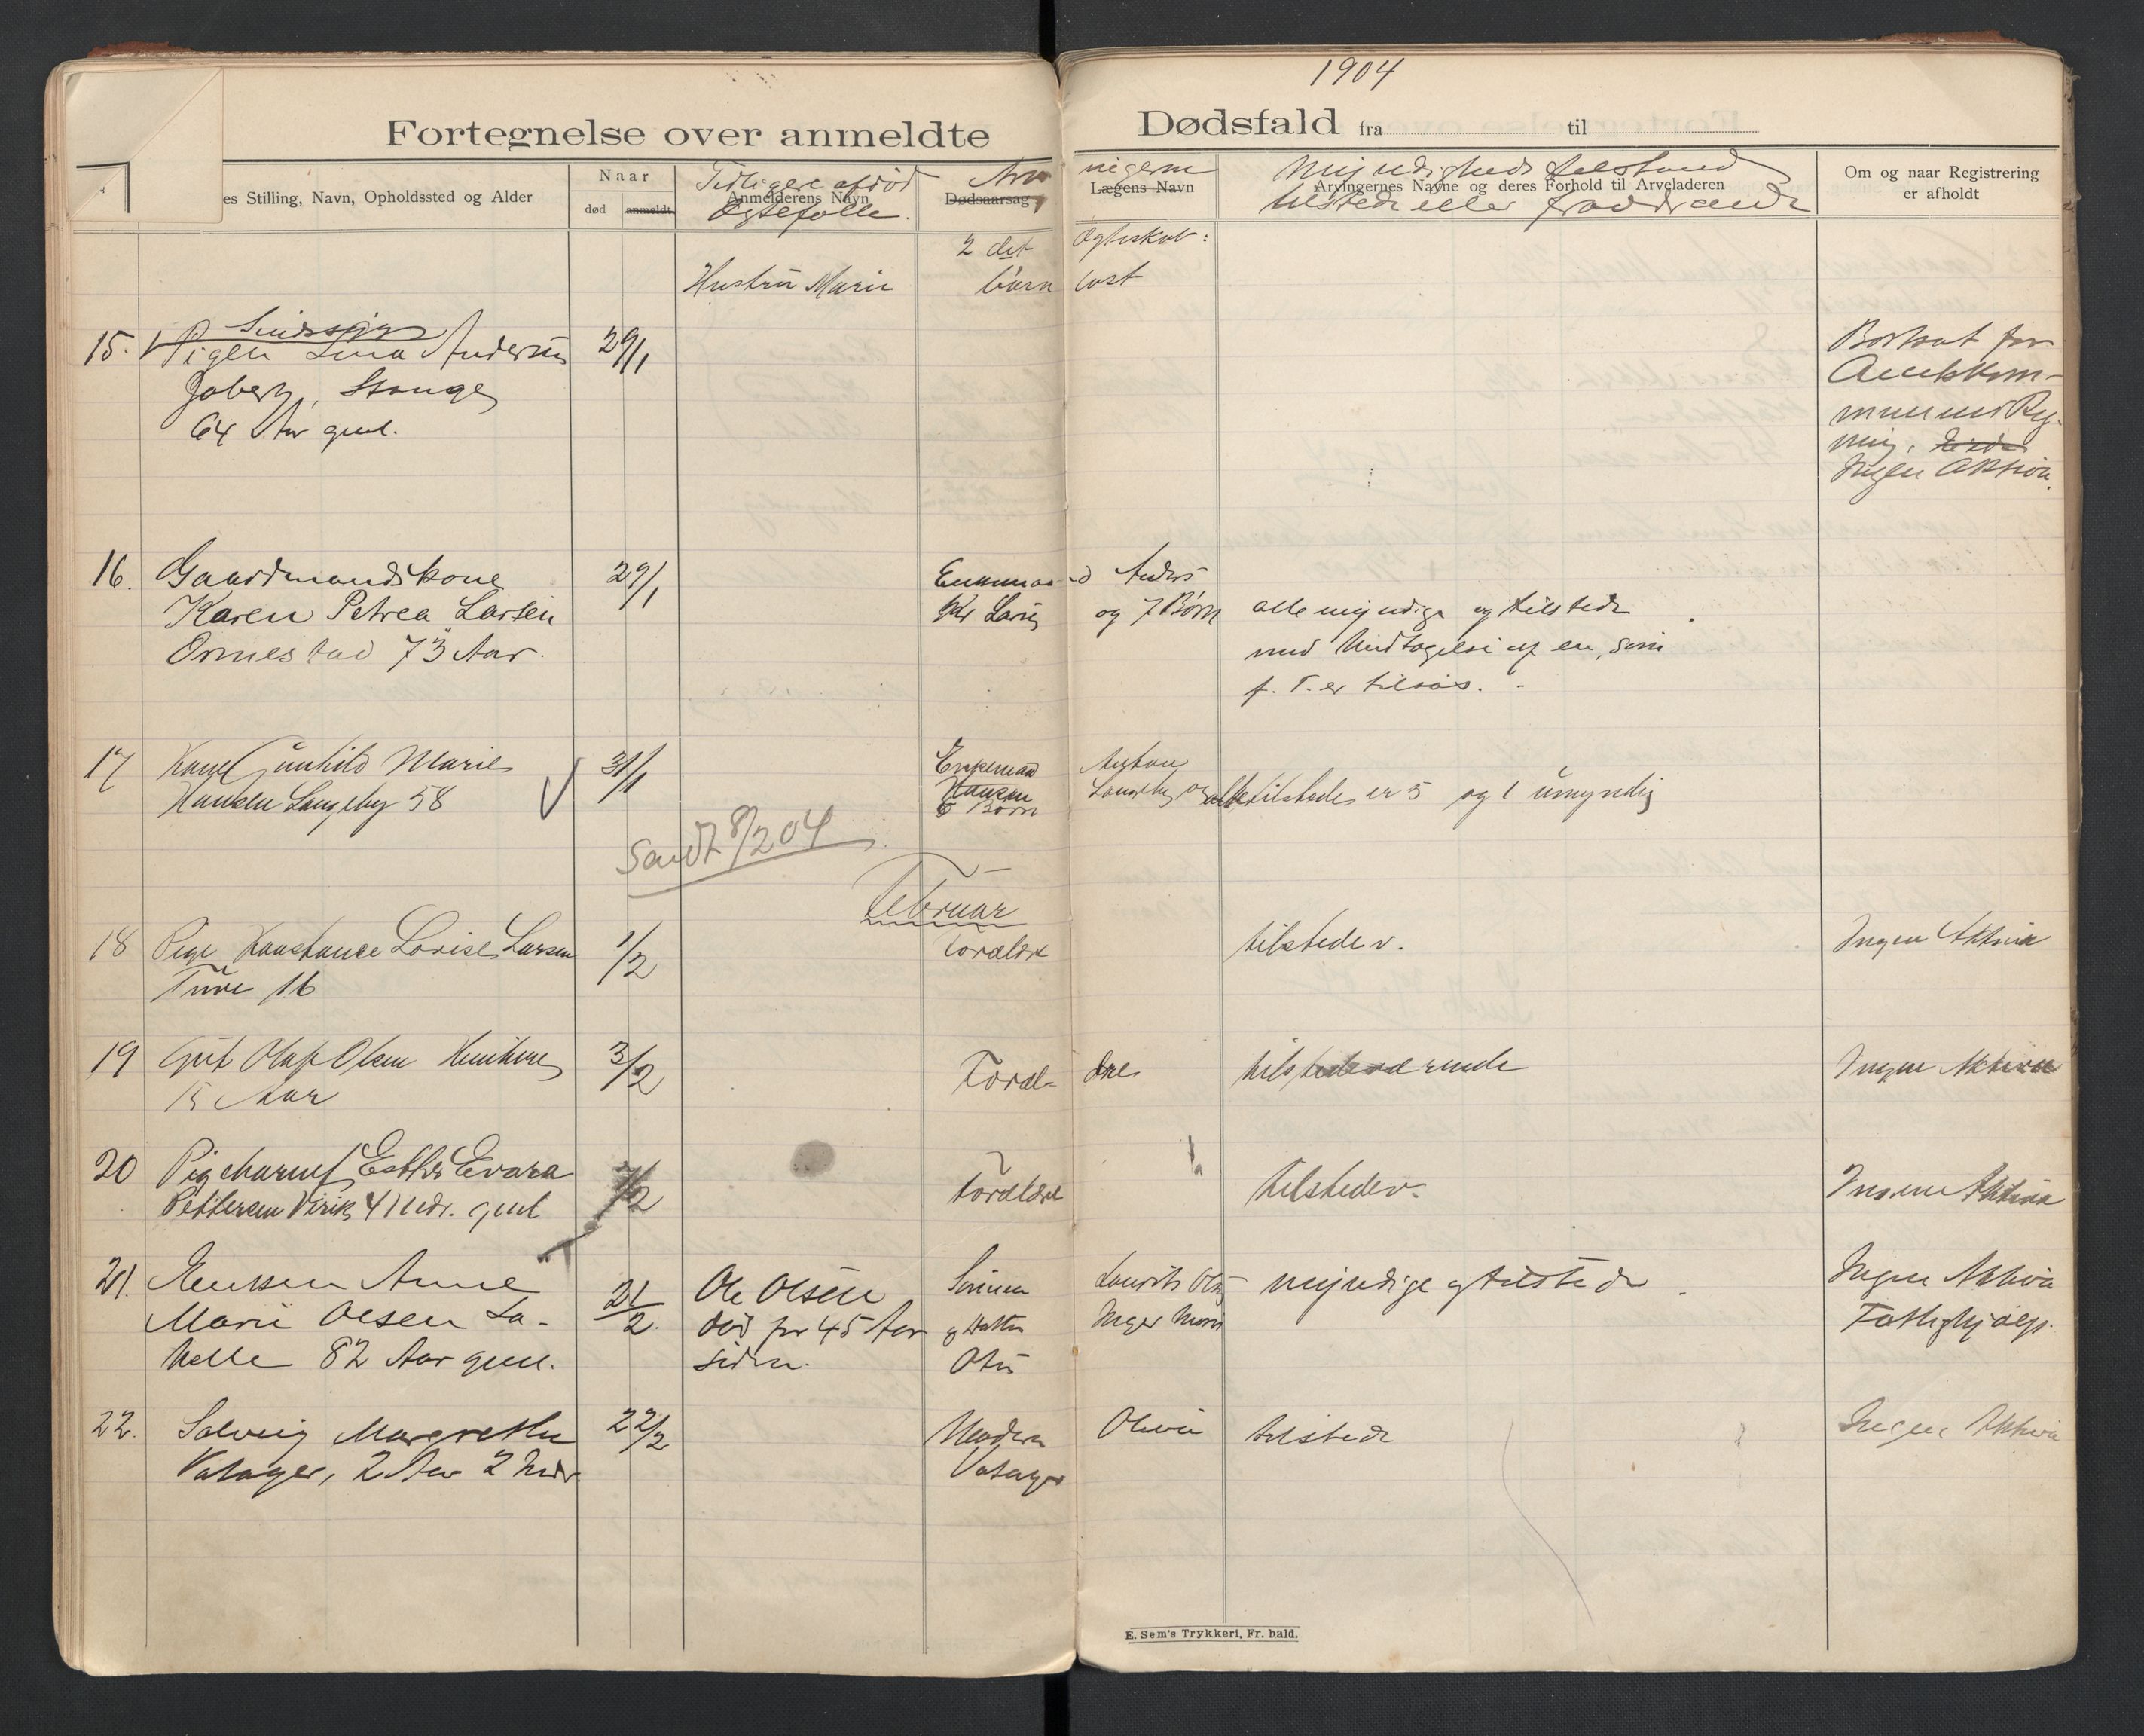 1904
Fortegnelse over anmeldte
Dødsfald fra til
es Stilling, Navn, Opholdssted og Alder
Naar
død
anmeldt
Tidligere afdød
Anmelderens Navn
Ægtefælle.
Arv
Dødsaarsag
ingerne
Lægens Navn
Myndigheds tilstand
Arvingernes Navne og deres Forhold til Arveladeren
tilstede eller fraværende
Om og naar Registrering
er afholdt
2 det Ægteskab:
Hustru Marie børn løst
15. Sindssyg
Pigen Lina Andersen 29/1
Stange
64 Aar gml.
Bortsat for
Amtskom-
munens Reg-
ning.
Ingen Aktiva.
16. Gaardmandskone 29/1 Enkemand Anders
Karen Petrea Larsen og 7 Børn alle myndige og tilstede
Ormestad 73 Aar. med Undtagelse af en, som
f. T. er tilsøs.
17 Kone Gunhild Marie 31/1 Enkemand Anton
Hansen Langeby 58 Hansen Langeby og alle tilstede er 5 og 1 umyndig
6 Børn
Sendt 8/2 04
Februar
18 Pige Konstance Lovise Larsen 1/2 Forældre tilstedev. Ingen Aktiva
Tuve 16
19 Gut Olaf Olsen 3/2 Forældre tilstedeværende Ingen Aktiva
15 Aar
20 Pigebarnet Esther Evara 7/2 Forældre tilstedev. Ingen Aktiva
Pettersen Virik 4 Mdr. gml
21. Enken Anne 21/2 Ole Olsen Sønnen Laurits Olsen myndige og tilstede Ingen Aktiva
Marie Olsen La- død for 45 Aar og Datter Inger Marie Fattighjælp.
velle 82 Aar gml. siden. Olsen
22. Solveig Margrethe 22/2 Moderen Olivia tilstede Ingen Aktiva
Vatager, 2 Aar 2 Mdr. Vatager
E. Sem's Trykkeri, Fr. hald.